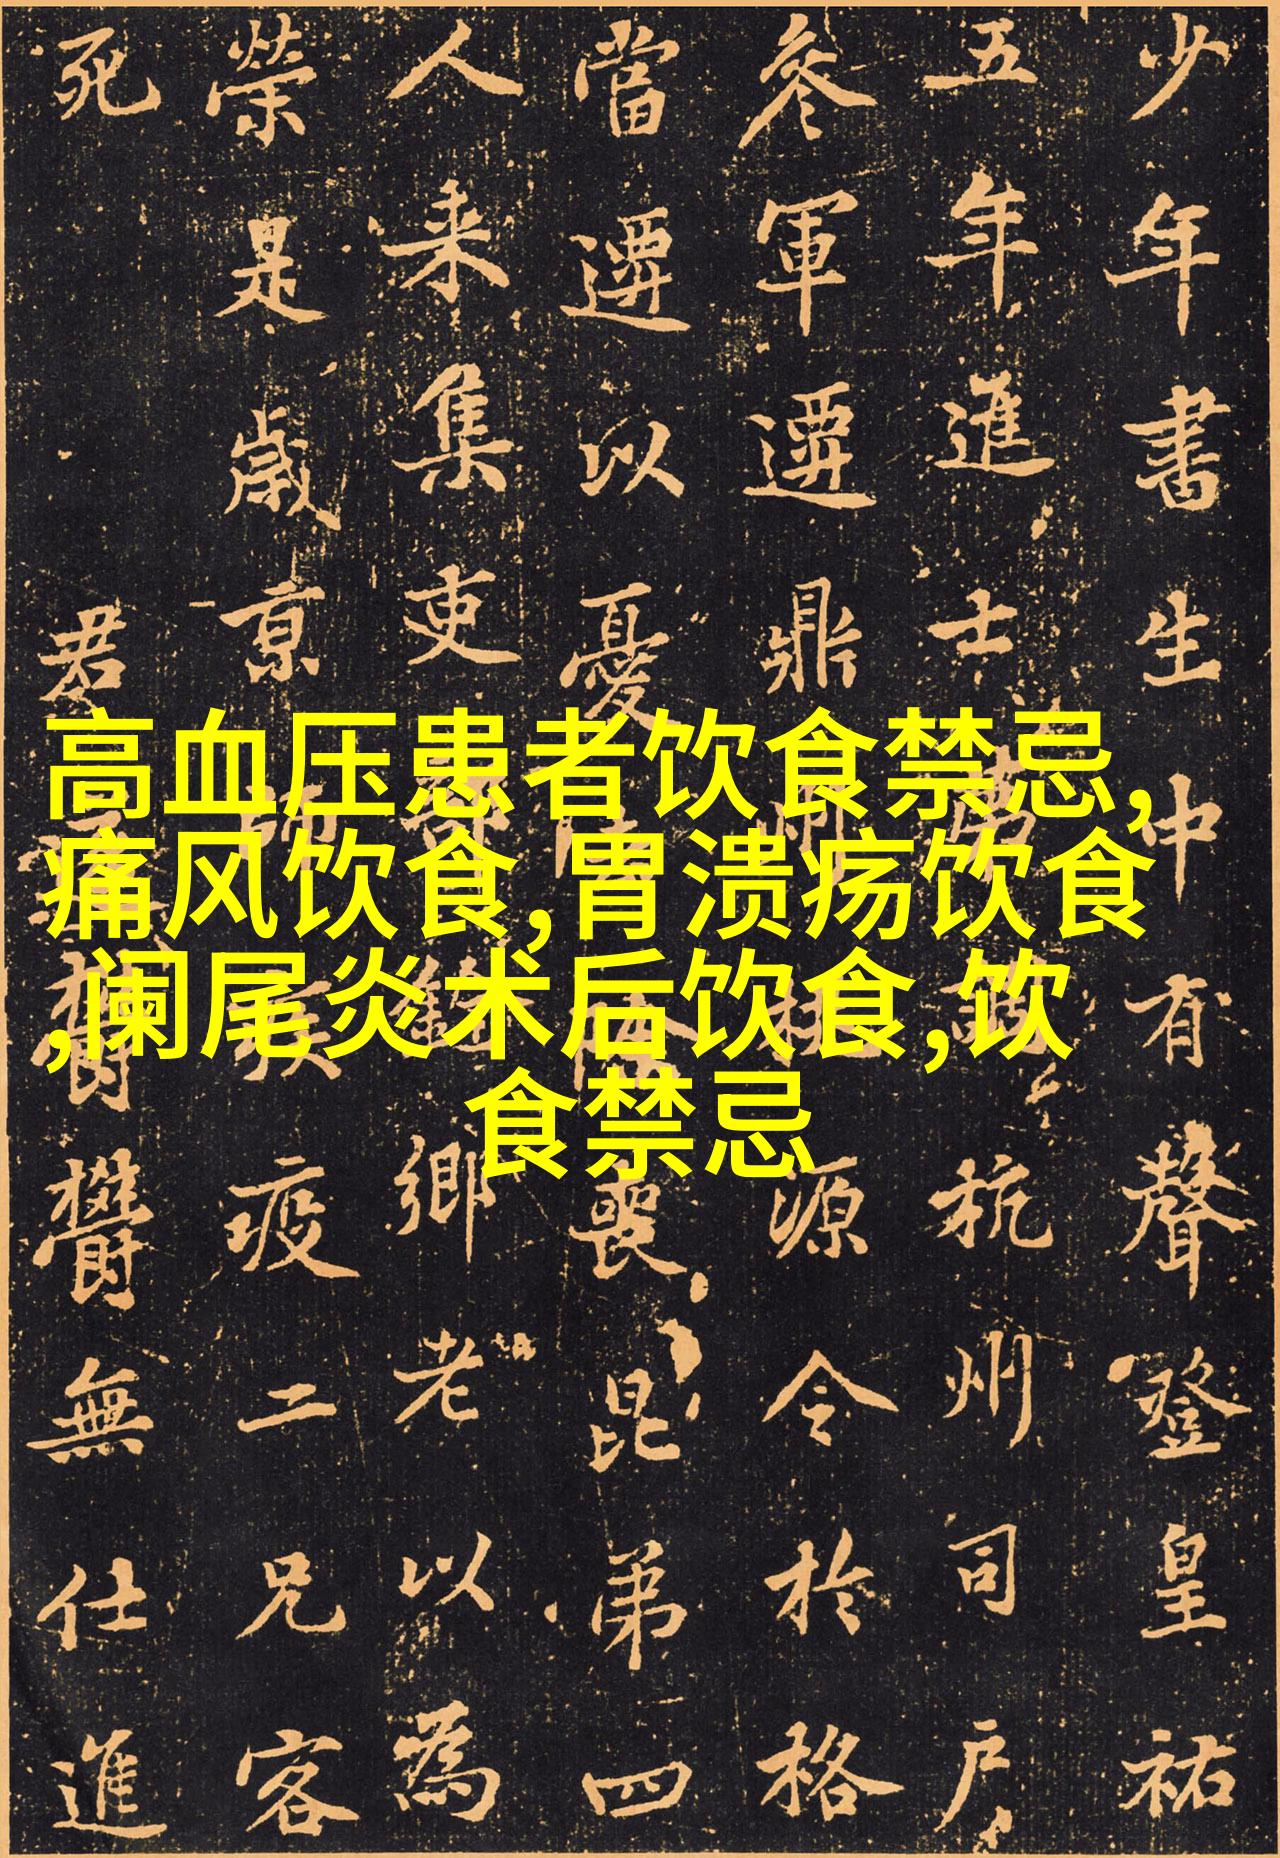 高血压患者饮食禁忌,
痛风饮食,胃溃疡饮食
,阑尾炎术后饮食,饮
食禁忌
少年書生中有聲登皇祐
五年進士杭州司戶
參軍遷鼎州桃源令於格
當遷以憂喪昆弟四
人来集吏鄉老以為
榮是歲京師疫二兄客
死君鬱鬱無仕進